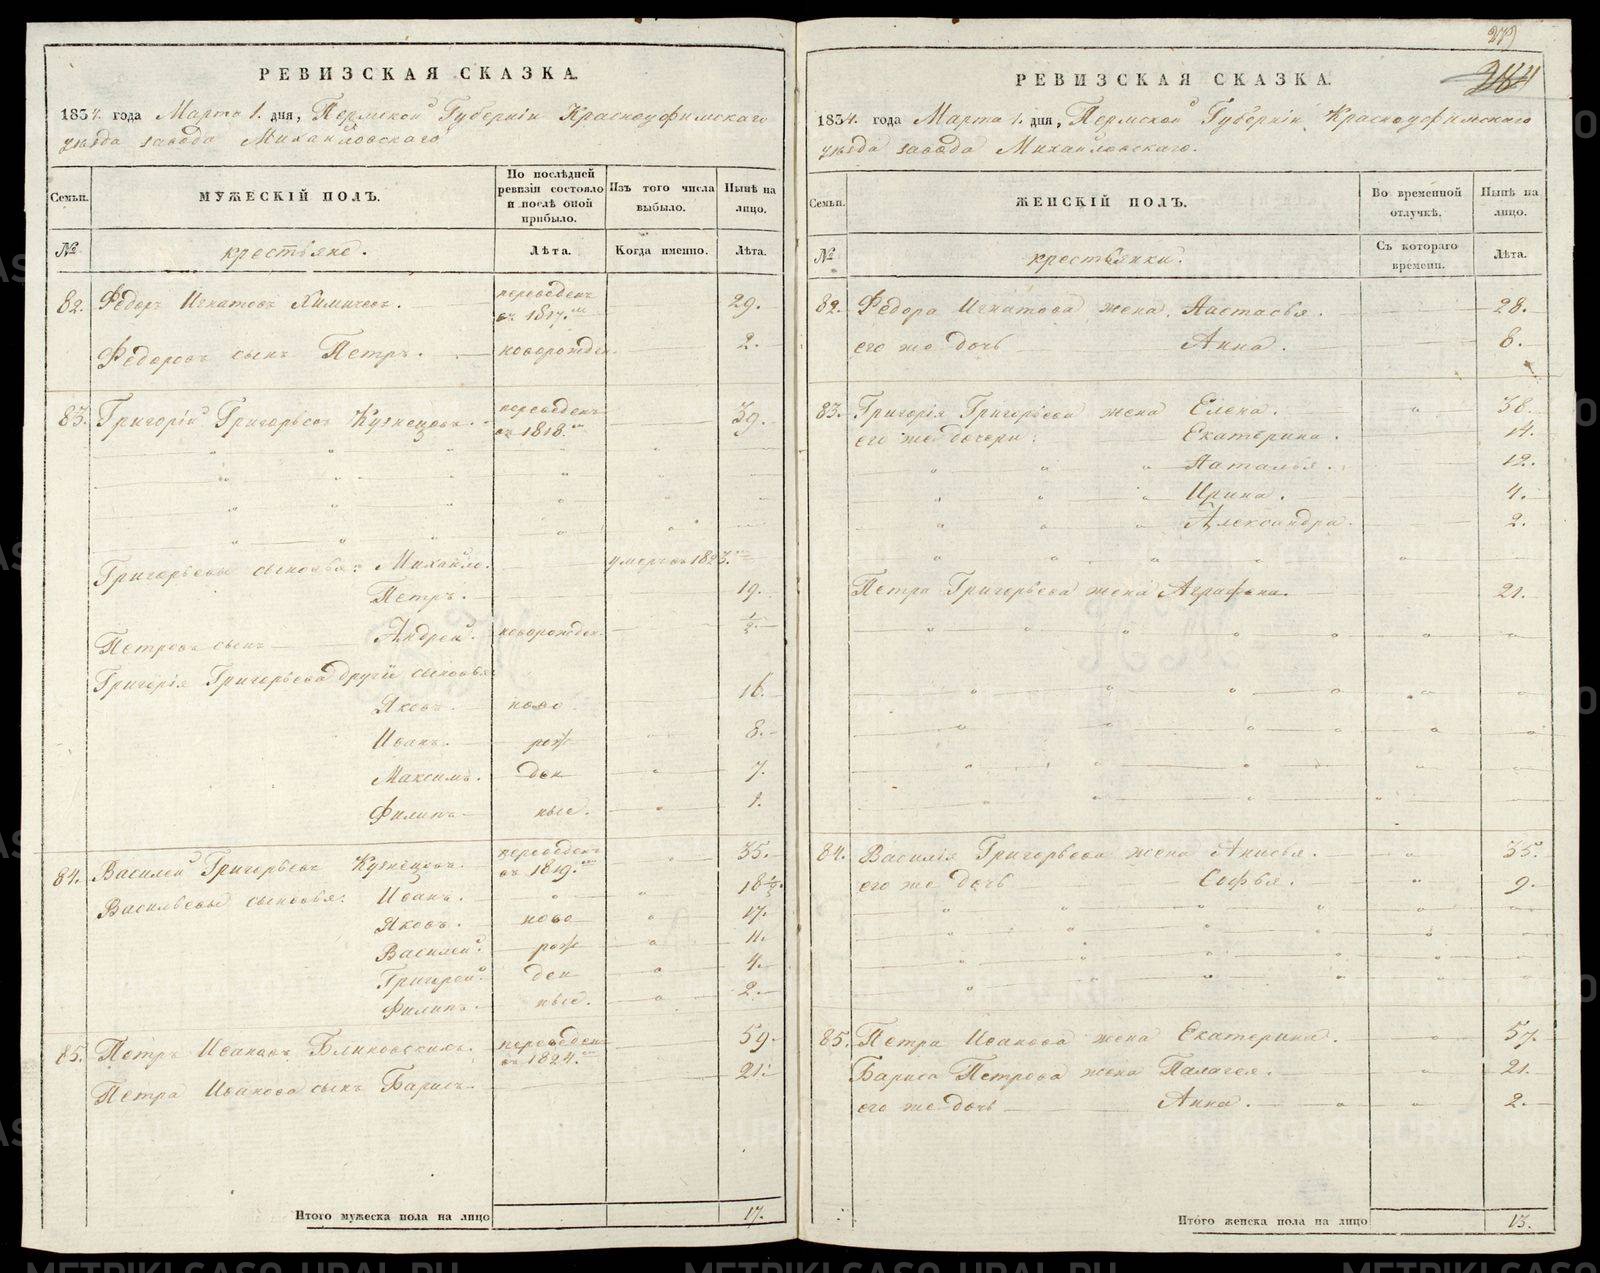 РЕВИЗСКАЯ СКАЗКА.
1834. года Марта 1. дня, Пермской Губернiи Красноуфимскаго
уѣзда завода Михайловскаго
Семьи.
МУЖЕСКIЙ ПОЛЪ.
По послѣдней ревизiи состояло и послѣ оной прибыло.
Изъ того числа выбыло.
Нынѣ на лицо.
№
крестьяне.
Лѣта.
Когда именно.
Лѣта.
82. Федоръ Игнатовъ переведенъ въ 1817.мъ 29.
Федоровъ сынъ Петръ. новорожден. 2.
83. Григорiй Григорьевъ Кузнецовъ. переведенъ въ 1818.мъ 39.
Григорьевы сыновья: Михайло. умеръ въ 1823.мъ
Петръ. 19.
Петровъ сынъ Андрей. новорожден. 1/2.
Григорiя Григорьева другiй сыновья
Яковъ. ново 16.
Иванъ. рож 8.
Максимъ. ден 7.
Филипъ ные. 1.
84. Василей Григорьевъ Кузнецовъ. переведенъ въ 1819.мъ 35.
Васильевы сыновья: Иванъ. 18 1/2.
Яковъ. ново 17.
Василей. рож 11.
Григорей. ден 4.
Филипъ. ные. 2.
85. Петръ Ивановъ Блиновскихъ. переведенъ въ 1824.мъ 59.
Петра Иванова сынъ Барисъ. 21.
Итого мужеска пола на лицо 17.
279
РЕВИЗСКАЯ СКАЗКА.
1834. года Марта 1. дня, Пермской Губернiи Красноуфимскаго
уѣзда завода Михайловскаго.
Семьи.
ЖЕНСКIЙ ПОЛЪ.
Во временной отлучкѣ.
Нынѣ на лицо.
№
крестьянки.
Съ котораго времени.
Лѣта.
82. Федора Игнатова жена, Настасья. 28.
его же дочь Анна. 6.
83. Григорiя Григорьева жена Елена. 38.
его же дочери: Екатерина. 14.
Наталья. 12.
Ирина. 4.
Александра. 2.
Петра Григорьева жена Аграфена. 21.
84. Василiя Григорьева жена Анисья. 35.
его же дочь Софья. 9.
85. Петра Иванова жена Екатерина. 57.
Бариса Петрова жена Палагея. 21.
его же дочь Анна. 2.
Итого женска пола на лицо 13.
METRIKI.GASO-URAL.RU